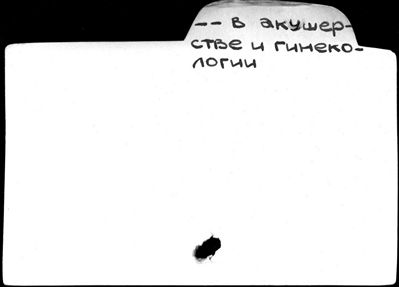 -- в акушер-
стве и гинеко-
логии